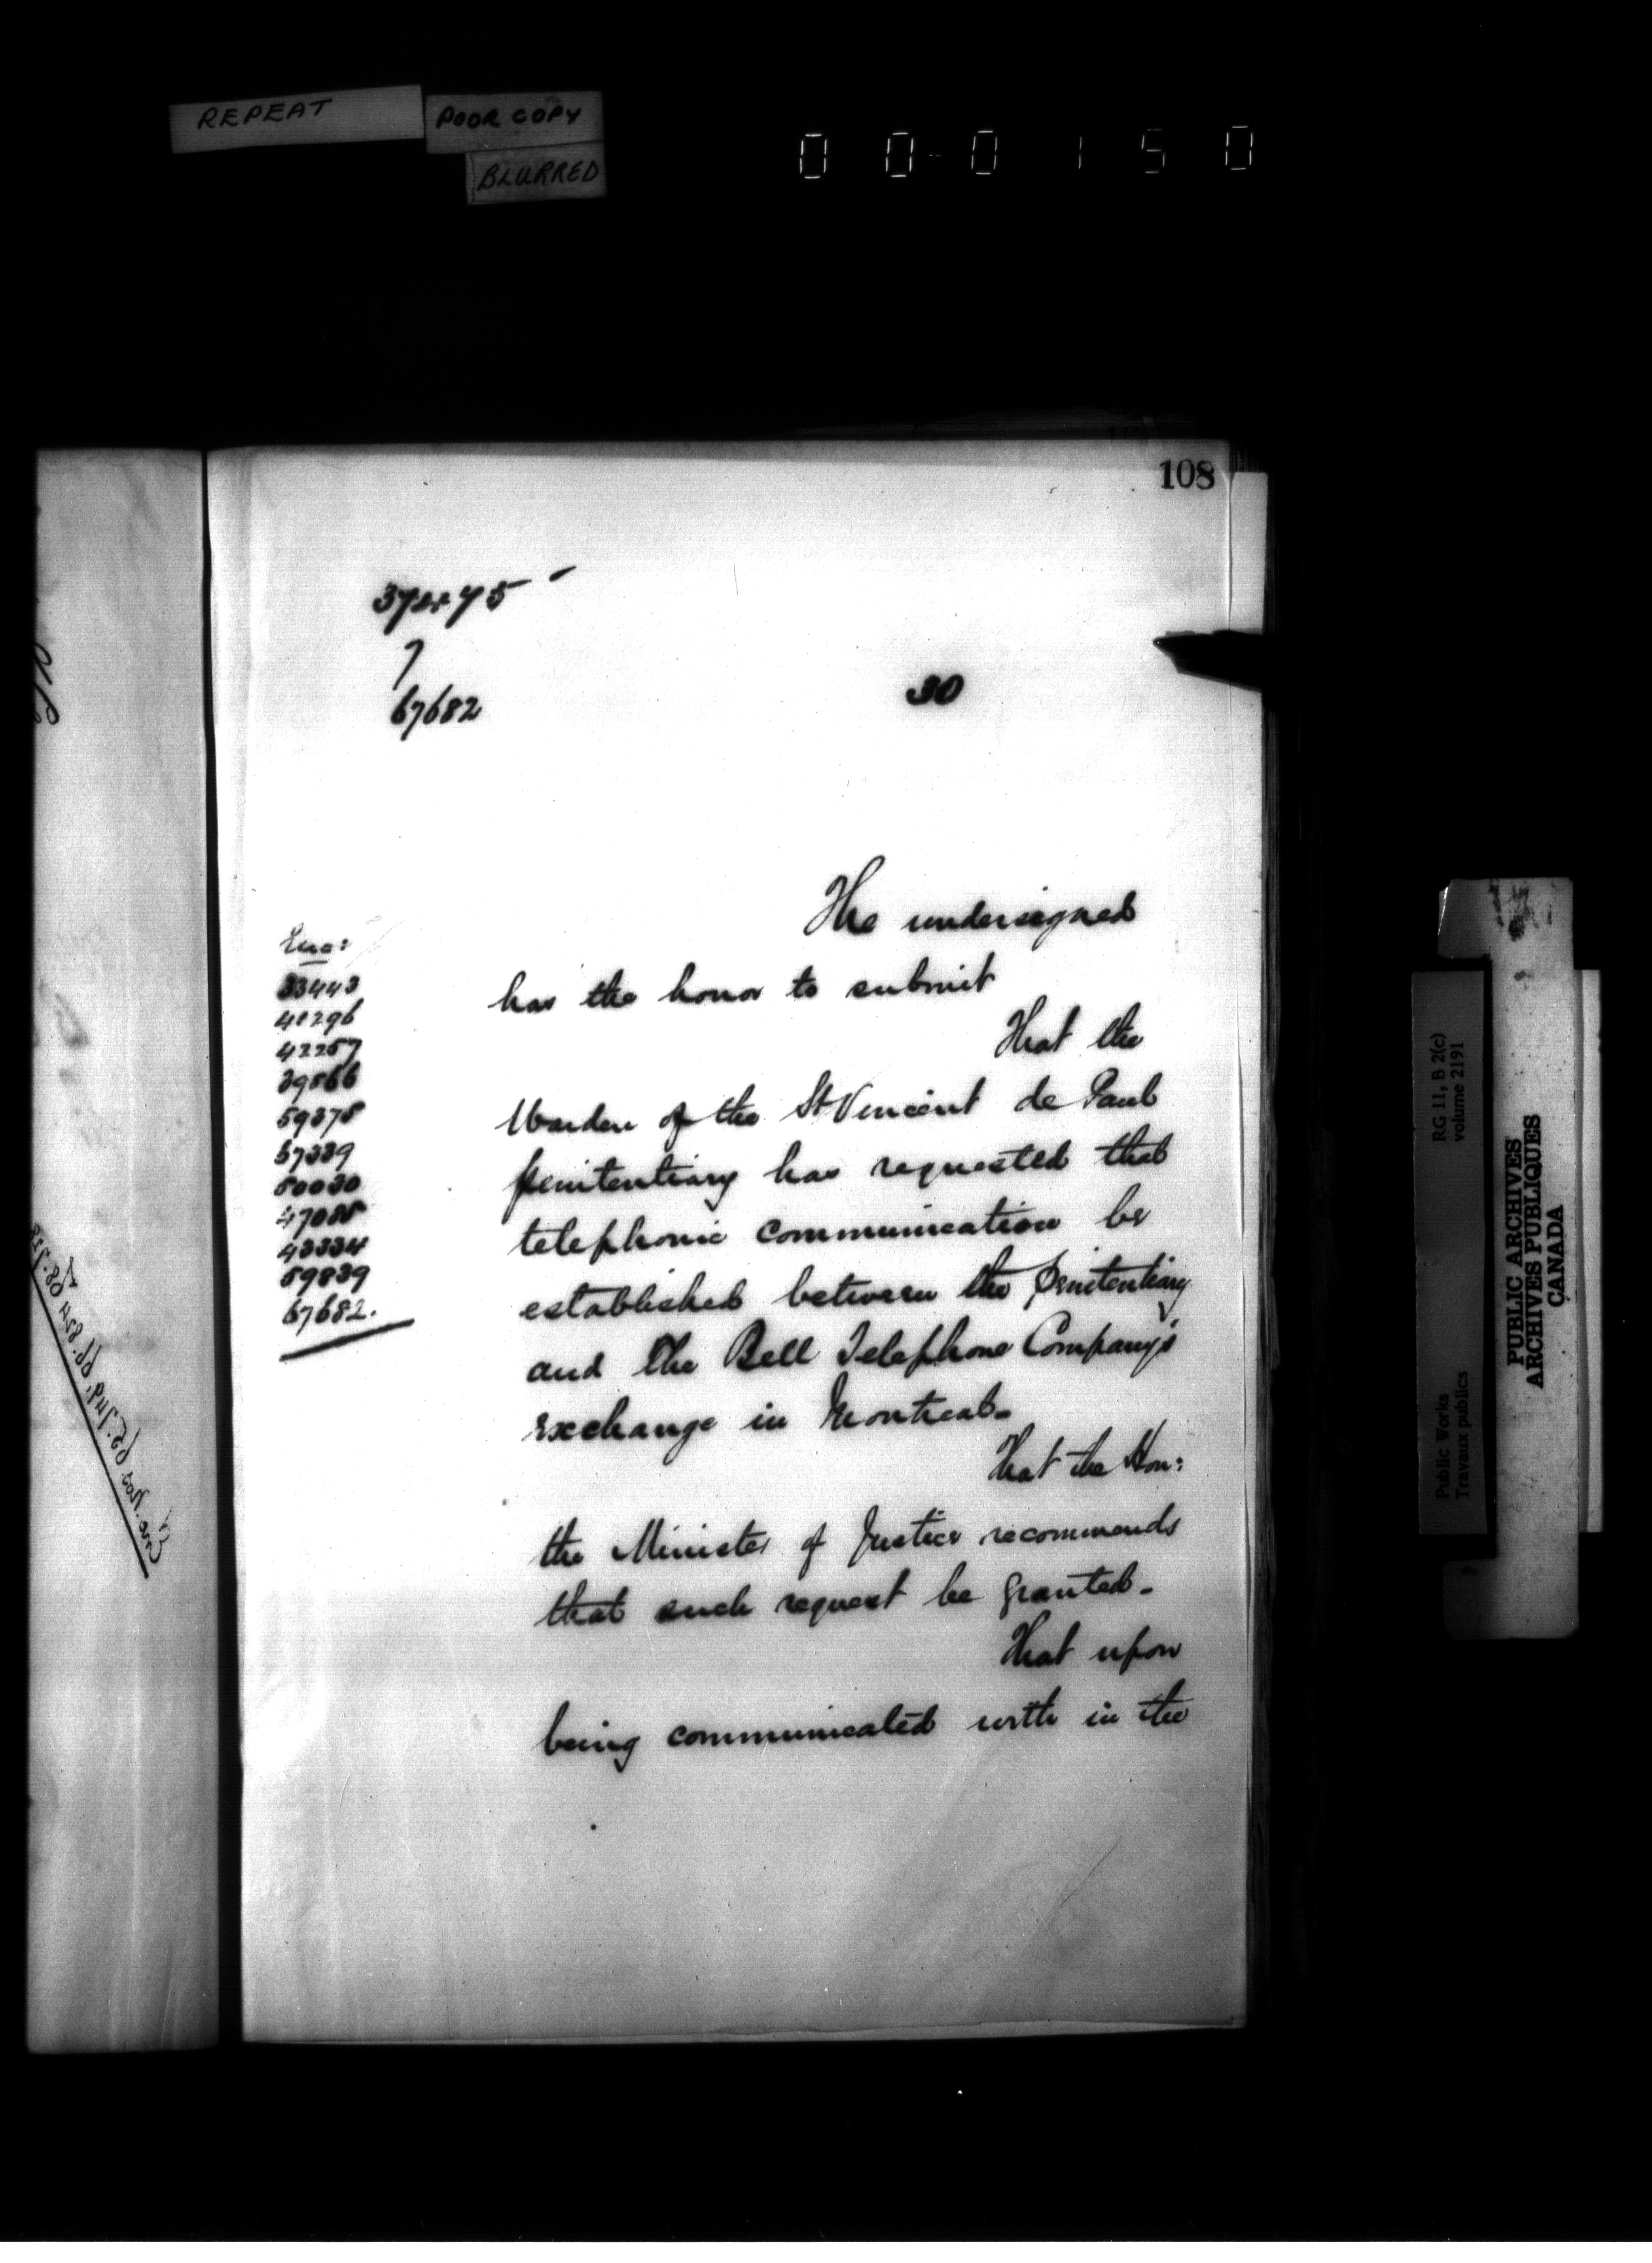 REPEAT
POOR COPY
BLURRED
00-0150
108
7
67682
30
The undersigned
has the honor to submit
That the
Warden of the St Vincent de Paul
penitentiary has requested that
telephonic communication be
established between the penitentiary
and the Bell Telephone Company's
exchange in Montreal-
That the Hon:
the Minister of Justice recommends
that such request be granted-
That upon
being communicated with in the
Enc:
33443
40296
42257
39566
59378
57339
50030
47085
43334
59839
67682.
Public Works
Travaux publics
RG 11, B 2(c)
volume 2191
PUBLIC ARCHIVES
ARCHIVES PUBLIQUES
CANADA